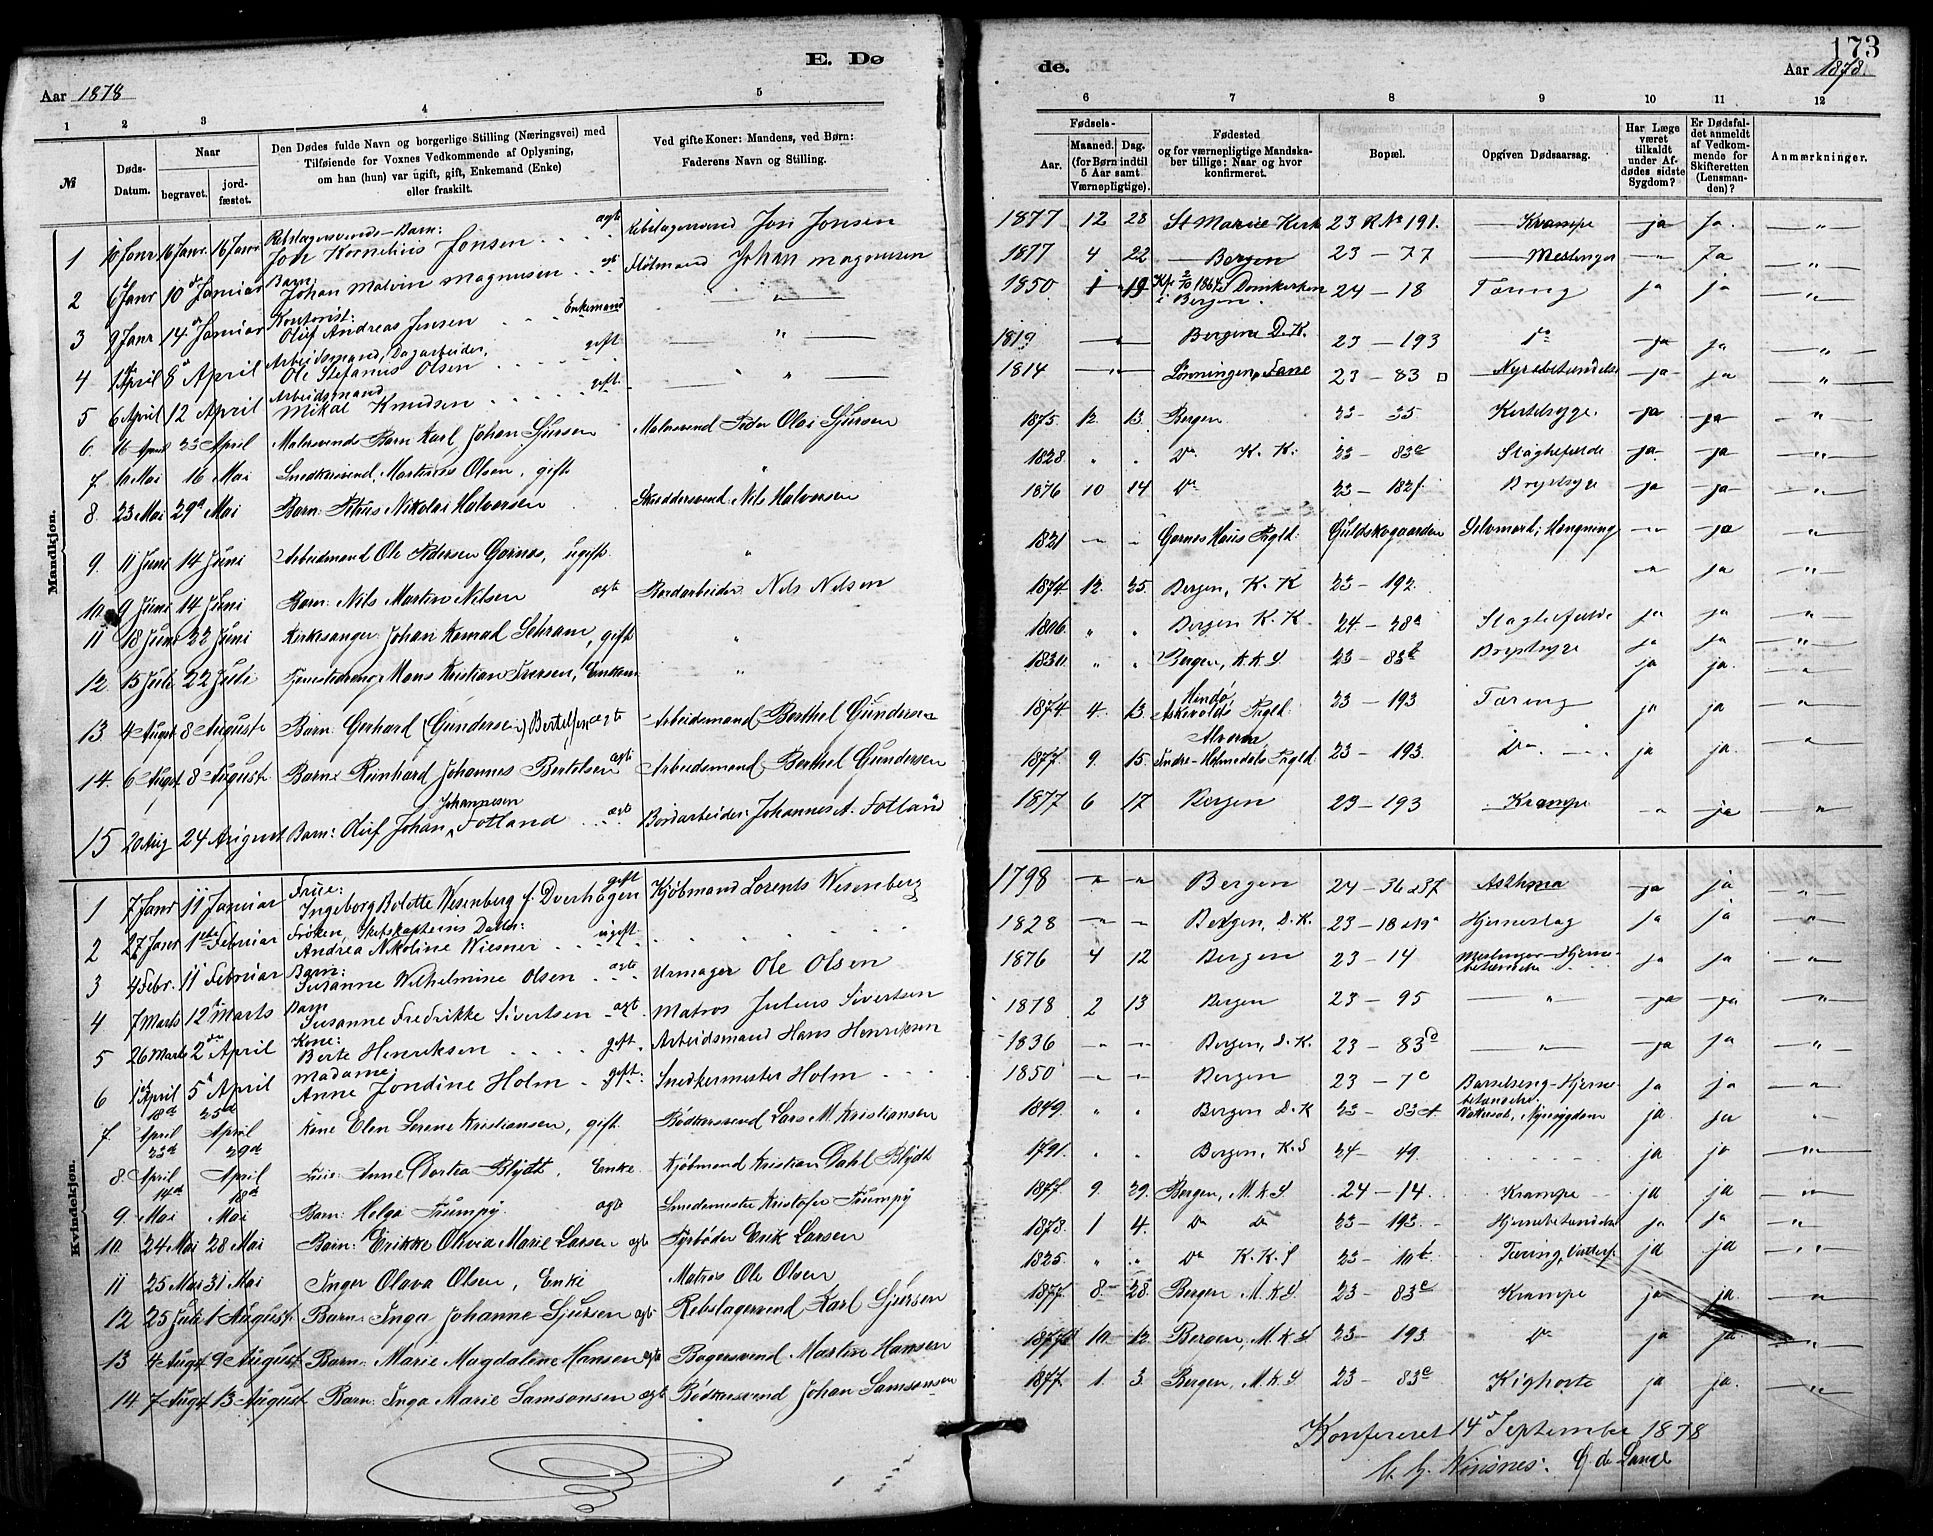 E. Dø
Aar 1878
1 2 3 4 5
№
Døds-Datum.
Naar
begravet.
jordfæstet.
Den Dødes fulde Navn og borgerlige Stilling (Næringsvei) med
Tilføiende for Voxnes Vedkommende af Oplysning,
om han (hun) var ugift, gift, Enkemand (Enke)
eller fraskilt.
Ved gifte Koner: Mandens, ved Børn:
Faderens Navn og Stilling.
Mandkjøn.
Rebslagersvends-Barn: ægte
1 10 Janr 16 Janr. 16 Janr. John Kornelius Jonsen Rebslagersvend Jon Jonsen
Barn:
2 6 Janr 10 Januar Johan Malvin Magnusen ægt Fløtmand Johan Magnusen
Kontorist: Enkemand
3 9 Janr 14 Januar Oluf Andreas Jensen "
Arbeidsmand, Dagarbeider, gift
4 1 April 8 April Ole Stefanus Olsen "
Arbeidsmand
5 6 April 12 April Mikal Knudsen gift
6 16 April 23 April Malersvends Barn Karl Johan Sjursen Malersvend Peder Olai Sjursen
7 10 Mai 16 Mai Snedkersvend Martinus Olsen, gift "
8 23 Mai 29 Mai Barn: Petrus Nikolai Halvorsen Skræddersvend: Nils Halvorsen
9 11 Juni 14 Juni Arbeidsmand Ole Pedersen Garnes, ugift. "
10 9 Juni 14 Juni Barn: Nils Martin Nilsen ægte Bordarbeider Nils Nilsen
11 18 Juni 22 Juni Kirkesanger Johan Konrad Schram, gift "
12 15 Juli 22 Juli Tjenestedreng Mons Kristian Iversen, Enkem "
13 4 Augst 8 August Barn: Gerhard (Gundersen) Bertelsen ægte Arbeidsmand Berthel Gundersen
14. 6 Augst 8 August Barn: Reinhard Johannes Bertelsen ægte Arbeidsmand Berthel Gundersen
Johannesen
15 20 Aug 24 August Barn: Oluf Johan Fotland ægte Bordarbeider: Johannes A. Fotland
Kvindekjøn.
Frue: gift
1 7 Janr 11 Januar Ingeborg Bolette Wesenberg f. Dverhagen Kjøbmand Lorents Wesenberg
Frøken, Skibskapteins Datter: ugift
2 27 Janr 1ste Februar Andrea Nikoline Wiesner
Barn: ægte
3 4 Febr. 11 Februar Susanne Wilhelmine Olsen Urmager Ole Olsen
Barn
4 7 Marts 12 Marts Susanne Fredrikke Sivertsen ægt. Matros Julius Sivertsen
Kone:
5 26 Marts 2 April Berte Henriksen gift. Arbeidsmand Hans Henriksen
Madame
6 1 April 5 April Anne Jondine Holm gift Snedkermester Holm
7. 18d April 25d April Kone Elen Serene Kristiansen, gift. Bødkersvend Lars M. Kristiansen
8. 23d April 29d April Frue: Anne Dortea Blydt, Enke Kjøbmand Kristian Dahl Blydt
9. 14d Mai 18d Mai Barn: Helga Trumpy ægte Smedemester Kristofer Trumpy
10. 24 Mai 28 Mai Barn: Erikke Okvia Marie Larsen ægte Fyrbøder Erik Larsen
11 25 Mai 31 Mai Inger Olava Olsen, Enke Matros Ole Olsen
12 25 Juli 1 August Barn: Inga Johanne Sjursen ægt Rebslagersvend Karl Sjursen
13 4 Augst 9 August Barn: Marie Magdalene Hansen ægte Bagersvend Martin Hansen
14 7 Augst 13 August Barn: Inga Marie Samsonsen ægt Bødkersvend Johan Samsonsen
de.
173
Aar 1878.
6 7 8 9 10 11 12
Fødsels-
Aar.
Maaned. Dag.
(for Børn indtil
5 Aar samt
Værnepligtige).
Fødested
og for værnepligtige Mandska-
ber tillige: Naar og hvor
konfirmeret.
Bopæl.
Opgiven Dødsaarsag.
Har Læge
været
tilkaldt
under Af-
dødes sidste
Sygdom?
Er Dødsfal-
det anmeldt
af Vedkom-
mende for
Skifteretten
(Lensman-
den)?
Anmærkninger.
1877 12 28 St Mariæ Kirk 23 R No 191. Krampe ja Ja. "
1877 4 22 Bergen 23 - 77 Meslinger " Ja "
1850 1 19 Kf. 2/10 1864 i Domkirken i Bergen. 24 - 18 Tæring ja ja "
1819 " Bergens D. K. 23 - 193 do ja ja "
1814 " Lønningen, Fane 23 - 83 □ Nyrebetændelse ja ja "
1875 12 13 Bergen 23 - 35 Kirtelsyge ja ja "
1828 " " Do K. K. 23 - 83e Slagtilfælde ja ja "
1876 10 14 Do 23 - 182f Brystsyge ja ja "
1821 " " Garnes Haus Prgld. Guldskogaarden Selvmord; Hængning " ja "
1874 12. 25. Bergen, K. K 23 - 192. " ja "
1806. " " Bergen K. K. 24 - 28a Slagtilfælde ja ja "
1830. " " Bergen, K. K. S 23 - 83b Brystsyge ja ja "
1874. 4. 13. Hindø Askevolds Prgld. 23 - 193 Tæring ja ja. "
1877. 9. 15. Alværn Indre-Holmedals Prgld 23 - 193. Do ja ja. "
1877 6 17 Bergen 23 - 193 Krampe " ja "
1798 " " Bergen 24 - 36 & 37 Asthma ja ja "
1828 " " Bergen, D. K. 23 - 18 & 19a Hjerneslag ja ja "
1876 4 12 Bergen 23 - 14 Meslinger - Hjerne-betændelse ja ja "
1878 2 13 Bergen 23 - 95 " ja ja "
1836 " " Bergen, D. K. 23 - 83d " ja ja "
1850 " " Bergen 23 - 7c Barselseng - Hjerne-betændelse. ja ja "
1849 " " Bergen D. K 23 - 83 Vattersot, Nyresygdom ja. ja "
1791. " " Bergen, K. S 24 - 49. ja ja "
1877. 9. 29. Bergen, M. K. S. 24 - 14. Krampe ja ja "
1878. 1 4. Do Do 23 - 193. Hjernebetændelse ja ja "
1825. " " Do K. K. S 23 - 10b Tæring, ja ja "
1877. 8 28. Bergen M. K. S. 23 - 83e Krampe ja ja. "
1877 10. 12. Bergen, M. K. S 23 - 193. Do ja ja "
1877. 1. 3. Bergen, M. K. S 23 - 83e Kighoste ja ja. "
Konfereret 14 September 1878
de Lange